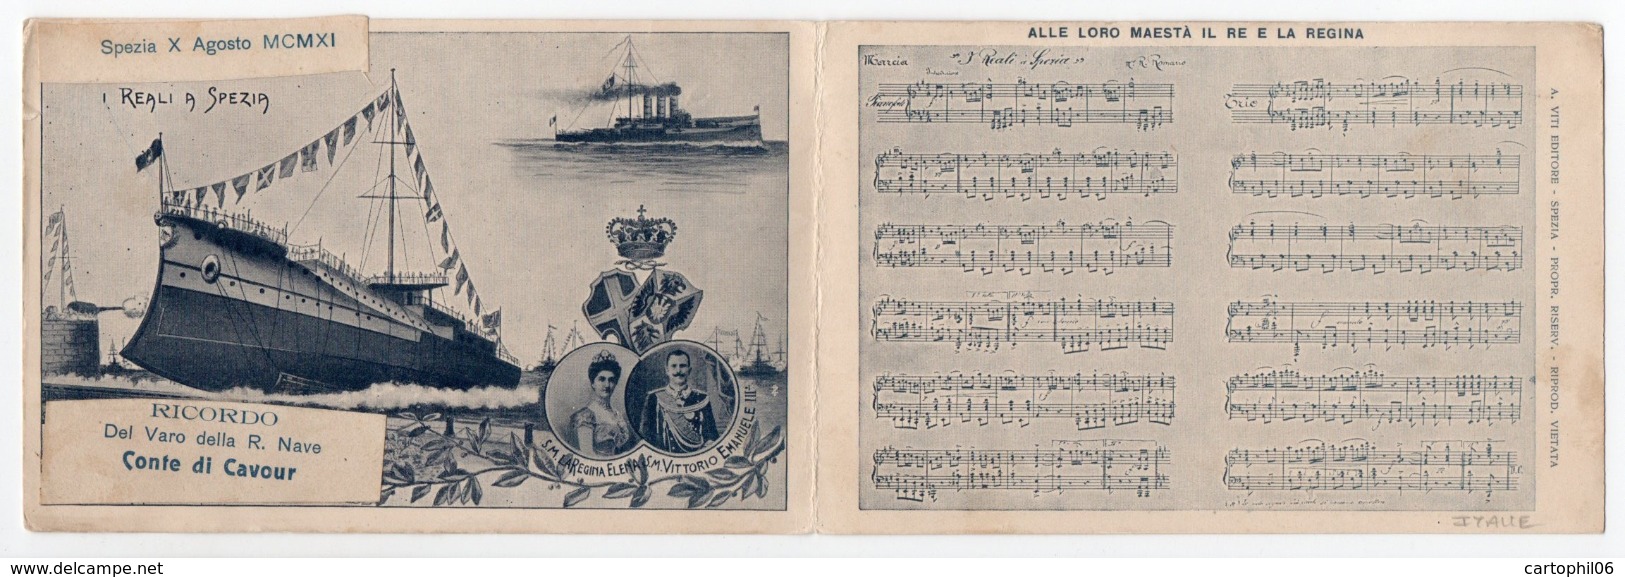 Spezia X Agosto MCMXI
I REALI A SPEZIA
RICORDO
Del Varo della R. Nave
Conte di Cavour
S.M. LA REGINA ELENA
S.M. VITTORIO EMANUELE III
ALLE LORO MAESTÀ IL RE E LA REGINA
Marcia
"I Reali a Spezia"
R. Romano
Pianoforte
Trio
D.C.
A. VITI EDITORE - SPEZIA - PROPR. RISERV. - RIPROD. VIETATA
ITALIE
cartophil06
www.delcampe.net